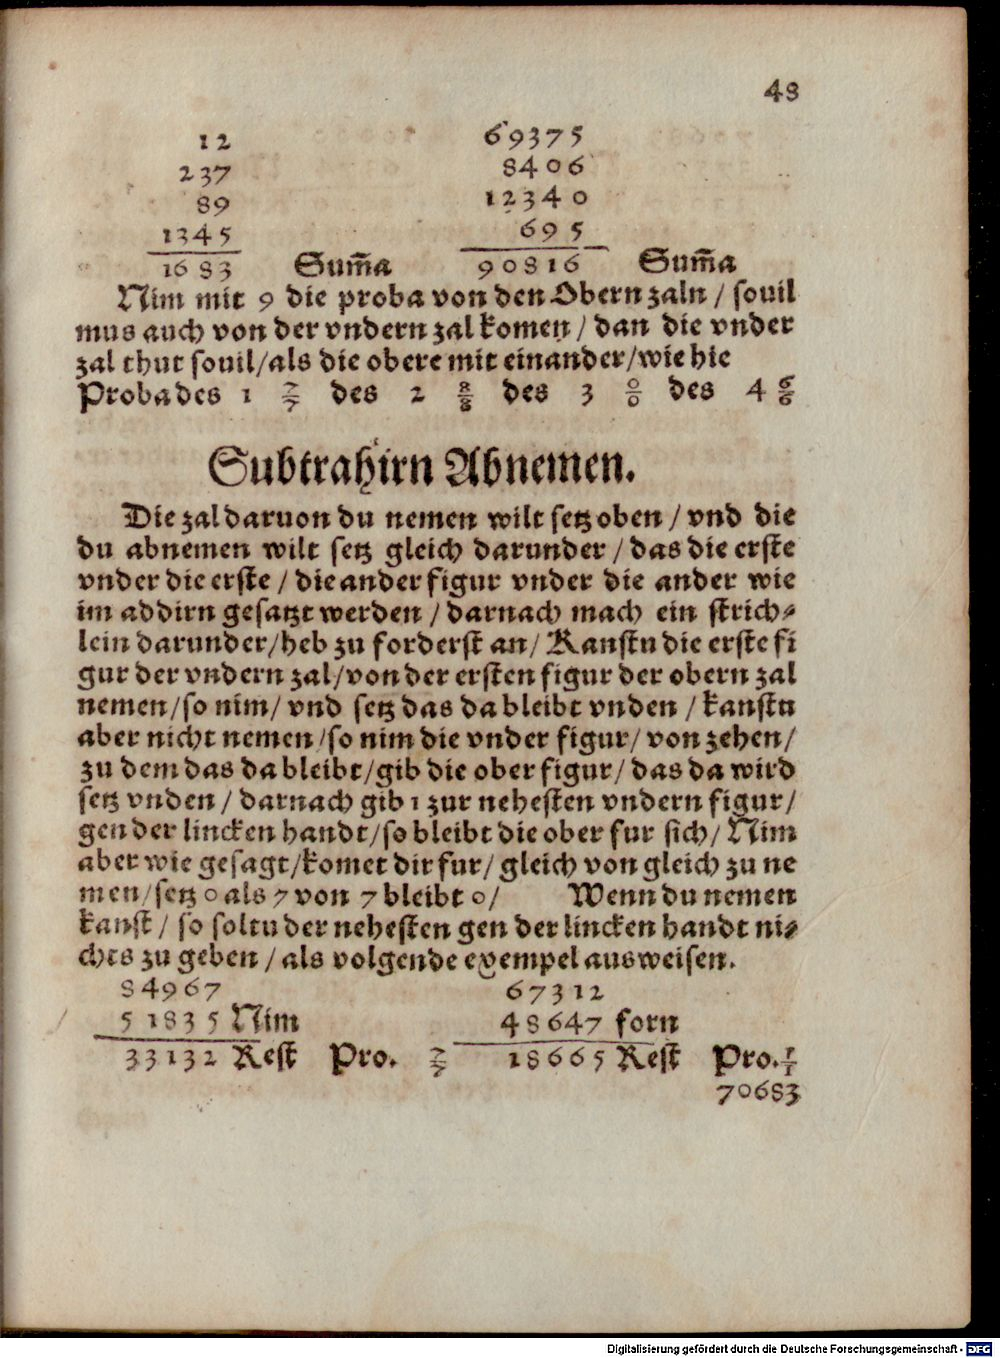 48
12 69375
237 8406
89 12340
1345 695
1683 Sum̃a 90816 Sum̃a
Nim mit 9 die proba von den Obern zaln / souil
mus auch von der vndern zal komen / dan die vnder
zal thut souil/als die obere mit einander/wie hie
Proba des 1 7/7 des 2 8/8 des 3 0/0 des 4 6/6
Subtrahirn Abnemen.
Die zal daruon du nemen wilt setz oben / vnd die
du abnemen wilt setz gleich darunder / das die erste
vnder die erste / die ander figur vnder die ander wie
im addirn gesatzt werden / darnach mach ein strich-
lein darunder/heb zu forderst an/ Kanstu die erste fi
gur der vndern zal/von der ersten figur der obern zal
nemen/so nim/ vnd setz das da bleibt vnden / kanstu
aber nicht nemen/so nim die vnder figur/ von zehen/
zu dem das da bleibt/gib die ober figur/ das da wird
setz vnden / darnach gib 1 zur nehesten vndern figur/
gen der lincken handt/so bleibt die ober fur sich/ Nim
aber wie gesagt/komet dir fur/ gleich von gleich zu ne
men/setz 0 als 7 von 7 bleibt 0/ Wenn du nemen
kanst / so soltu der nehesten gen der lincken handt ni-
chts zu geben / als volgende exempel ausweisen.
84967 67312
51835 Nim 48647 forn
33132 Rest Pro. 7/7 18665 Rest Pro. 1/1
70683
Digitalisierung gefördert durch die Deutsche Forschungsgemeinschaft - DFG